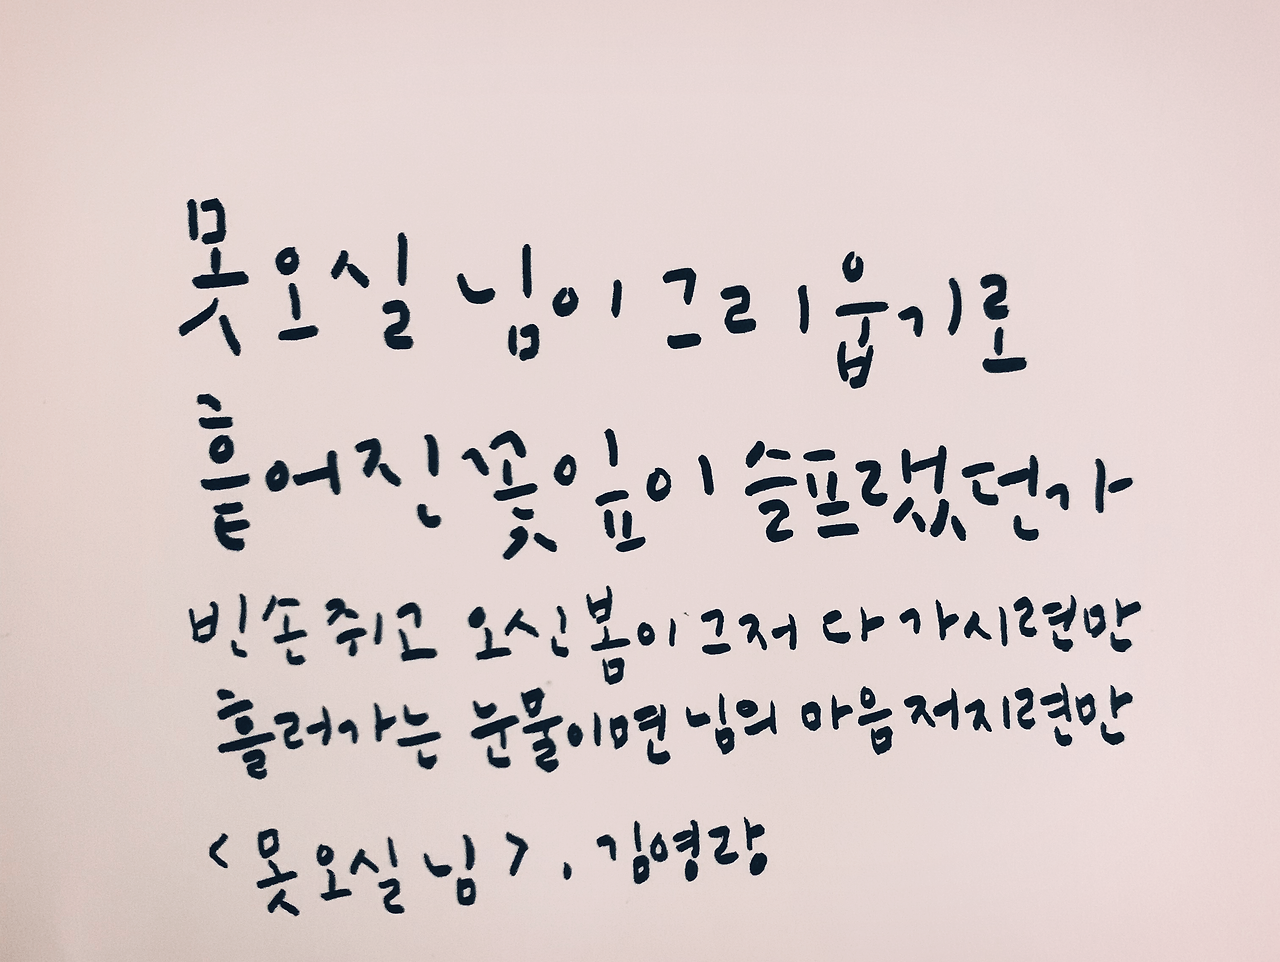 못오실 님이 그리웁기로
흩어진 꽃잎이 슬프랬던가
빈손 쥐고 오신 봄이 그저 다 가시련만
흘러가는 눈물이면 님의 마음 저지련만
<못오실 님>, 김영랑